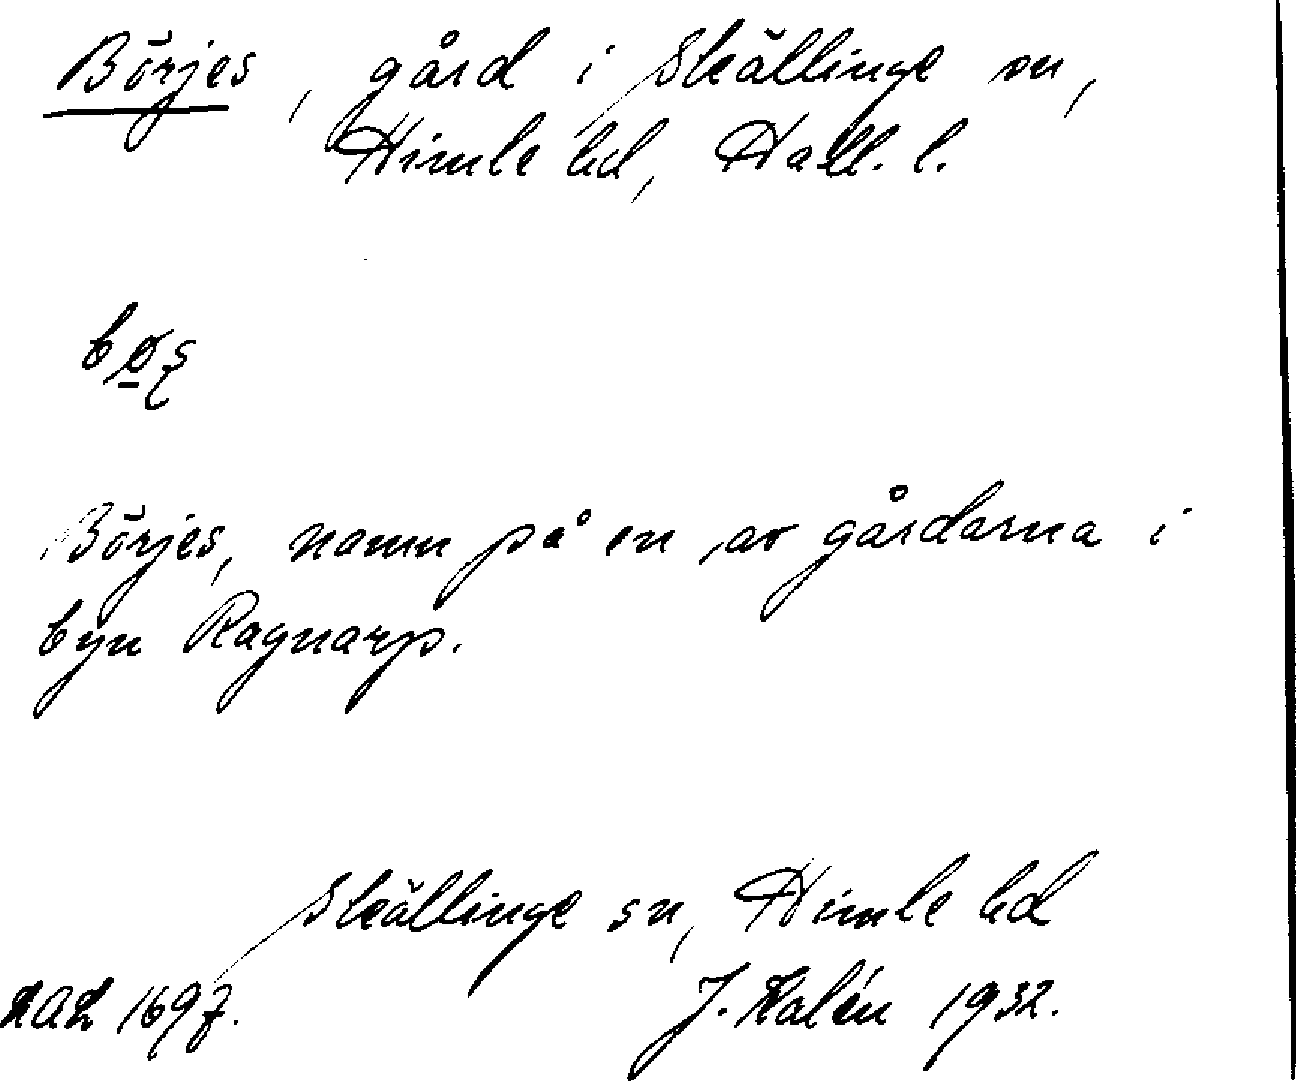 Börjes, gård i Skällinge sn,
Himle hd, Hall. l.
Börjes, namn på en av gårdarna i
byn Ragnarp.
Skällinge sn, Himle hd
LAL 1697. J. Kalén 1932.